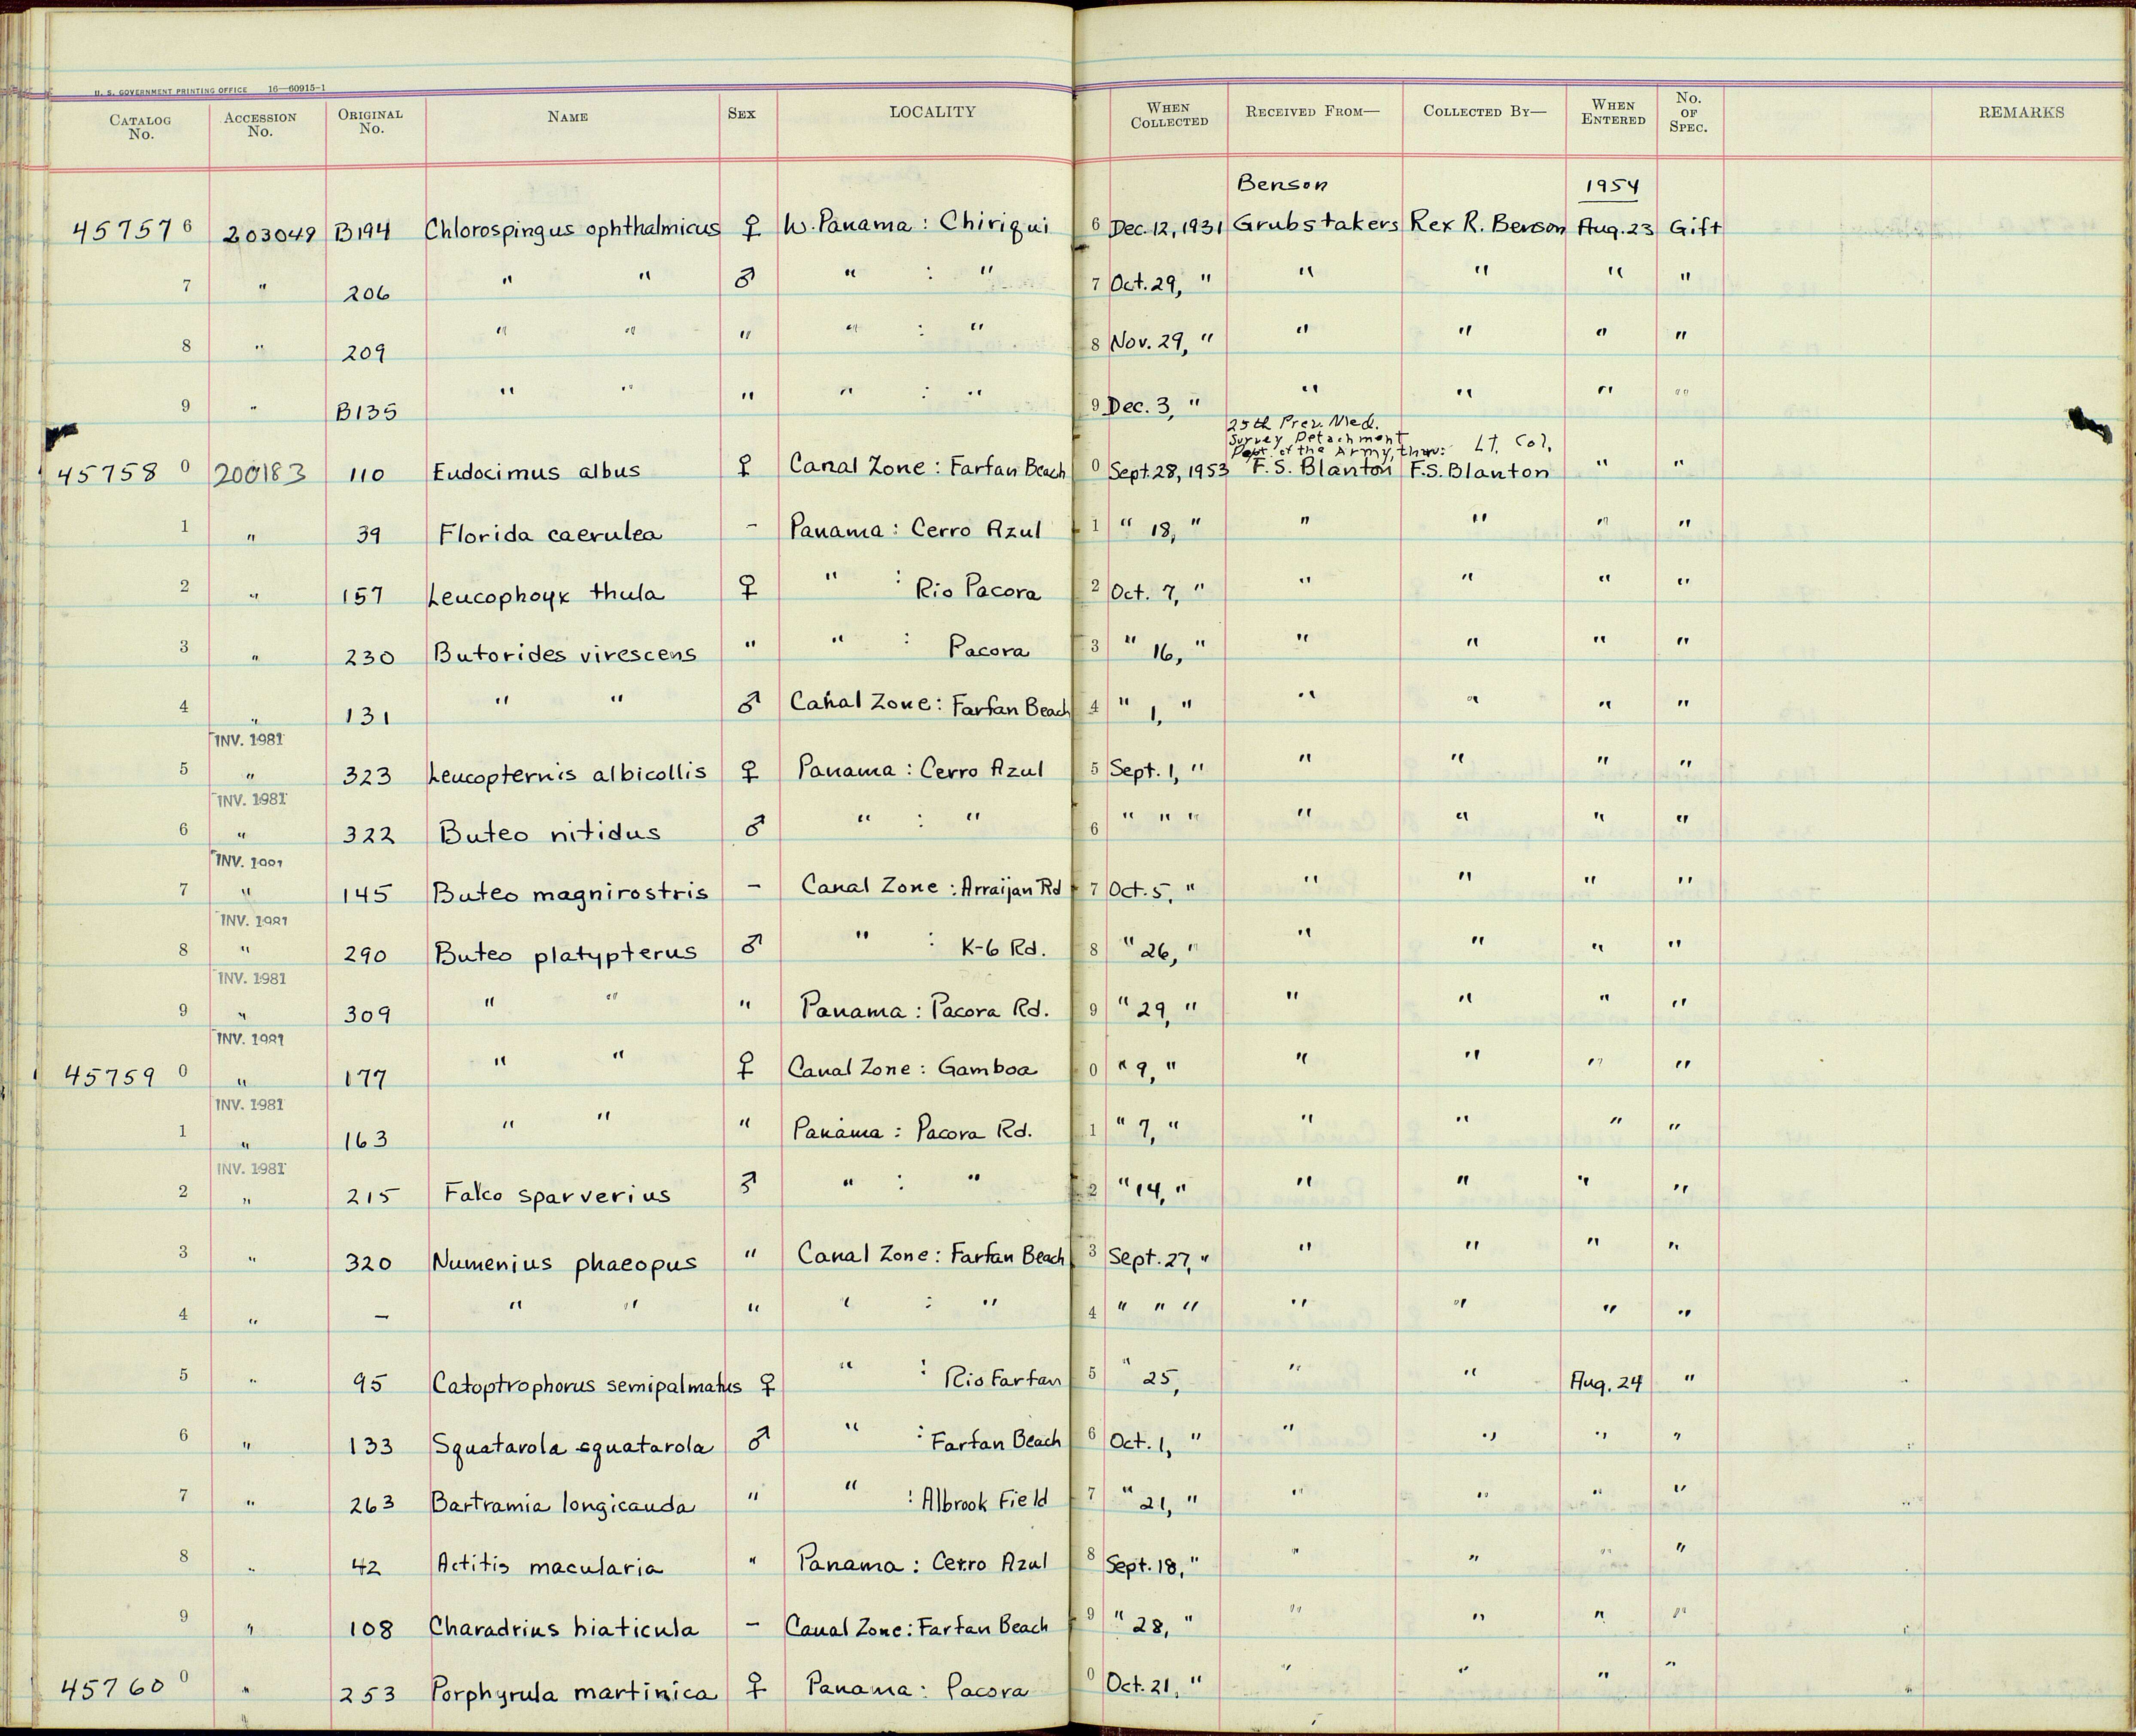 U. S. GOVERNMENT PRINTING OFFICE 16—60915-1
CATALOG No. ACCESSION No. ORIGINAL No. NAME SEX LOCALITY WHEN COLLECTED RECEIVED FROM— COLLECTED BY— WHEN ENTERED No. OF SPEC. REMARKS
Benson 1954
45757 6 203049 B194 Chlorospingus ophthalmicus ♀ W. Panama : Chiriqui 6 Dec. 12, 1931 Grubstakers Rex R. Benson Aug. 23 Gift
7 " 206 " " ♂ " : " 7 Oct. 29, " " " " "
8 " 209 " " " " : " 8 Nov. 29, " " " " "
9 " B135 " " " " : " 9 Dec. 3, " " " " "
25th Prev. Med.
Survey Detachment
Dept. of the Army, thru: Lt. Col.
45758 0 200183 110 Eudocimus albus ♀ Canal Zone : Farfan Beach 0 Sept. 28, 1953 F. S. Blanton F.S. Blanton " "
1 " 39 Florida caerulea – Panama : Cerro Azul 1 " 18, " " " " "
2 " 157 Leucophoyx thula ♀ " : Rio Pacora 2 Oct. 7, " " " " "
3 " 230 Butorides virescens " " : Pacora 3 " 16, " " " " "
4 " 131 " " ♂ Canal Zone : Farfan Beach 4 " 1, " " " " "
INV. 1981
5 " 323 Leucopternis albicollis ♀ Panama : Cerro Azul 5 Sept. 1, " " " " "
INV. 1981
6 " 322 Buteo nitidus ♂ " : " 6 " " " " " " "
INV. 1981
7 " 145 Buteo magnirostris – Canal Zone : Arraijan Rd 7 Oct. 5, " " " " "
INV. 1981
8 " 290 Buteo platypterus ♂ " : K-6 Rd. 8 " 26, " " " " "
INV. 1981
9 " 309 " " " Panama : Pacora Rd. 9 " 29, " " " " "
INV. 1981
45759 0 " 177 " " ♀ Canal Zone : Gamboa 0 " 9, " " " " "
INV. 1981
1 " 163 " " " Panama : Pacora Rd. 1 " 7, " " " " "
INV. 1981
2 " 215 Falco sparverius ♂ " : " 2 " 14, " " " " "
3 " 320 Numenius phaeopus " Canal Zone : Farfan Beach 3 Sept. 27, " " " " "
4 " – " " " " : " 4 " " " " " " "
5 " 95 Catoptrophorus semipalmatus ♀ " : Rio Farfan 5 " 25, " " Aug. 24 "
6 " 133 Squatarola squatarola ♂ " : Farfan Beach 6 Oct. 1, " " " " "
7 " 263 Bartramia longicauda " " : Albrook Field 7 " 21, " " " " "
8 " 42 Actitis macularia " Panama : Cerro Azul 8 Sept. 18, " " " " "
9 " 108 Charadrius hiaticula – Canal Zone : Farfan Beach 9 " 28, " " " " "
45760 0 " 253 Porphyrula martinica ♀ Panama : Pacora 0 Oct. 21, " " " " "